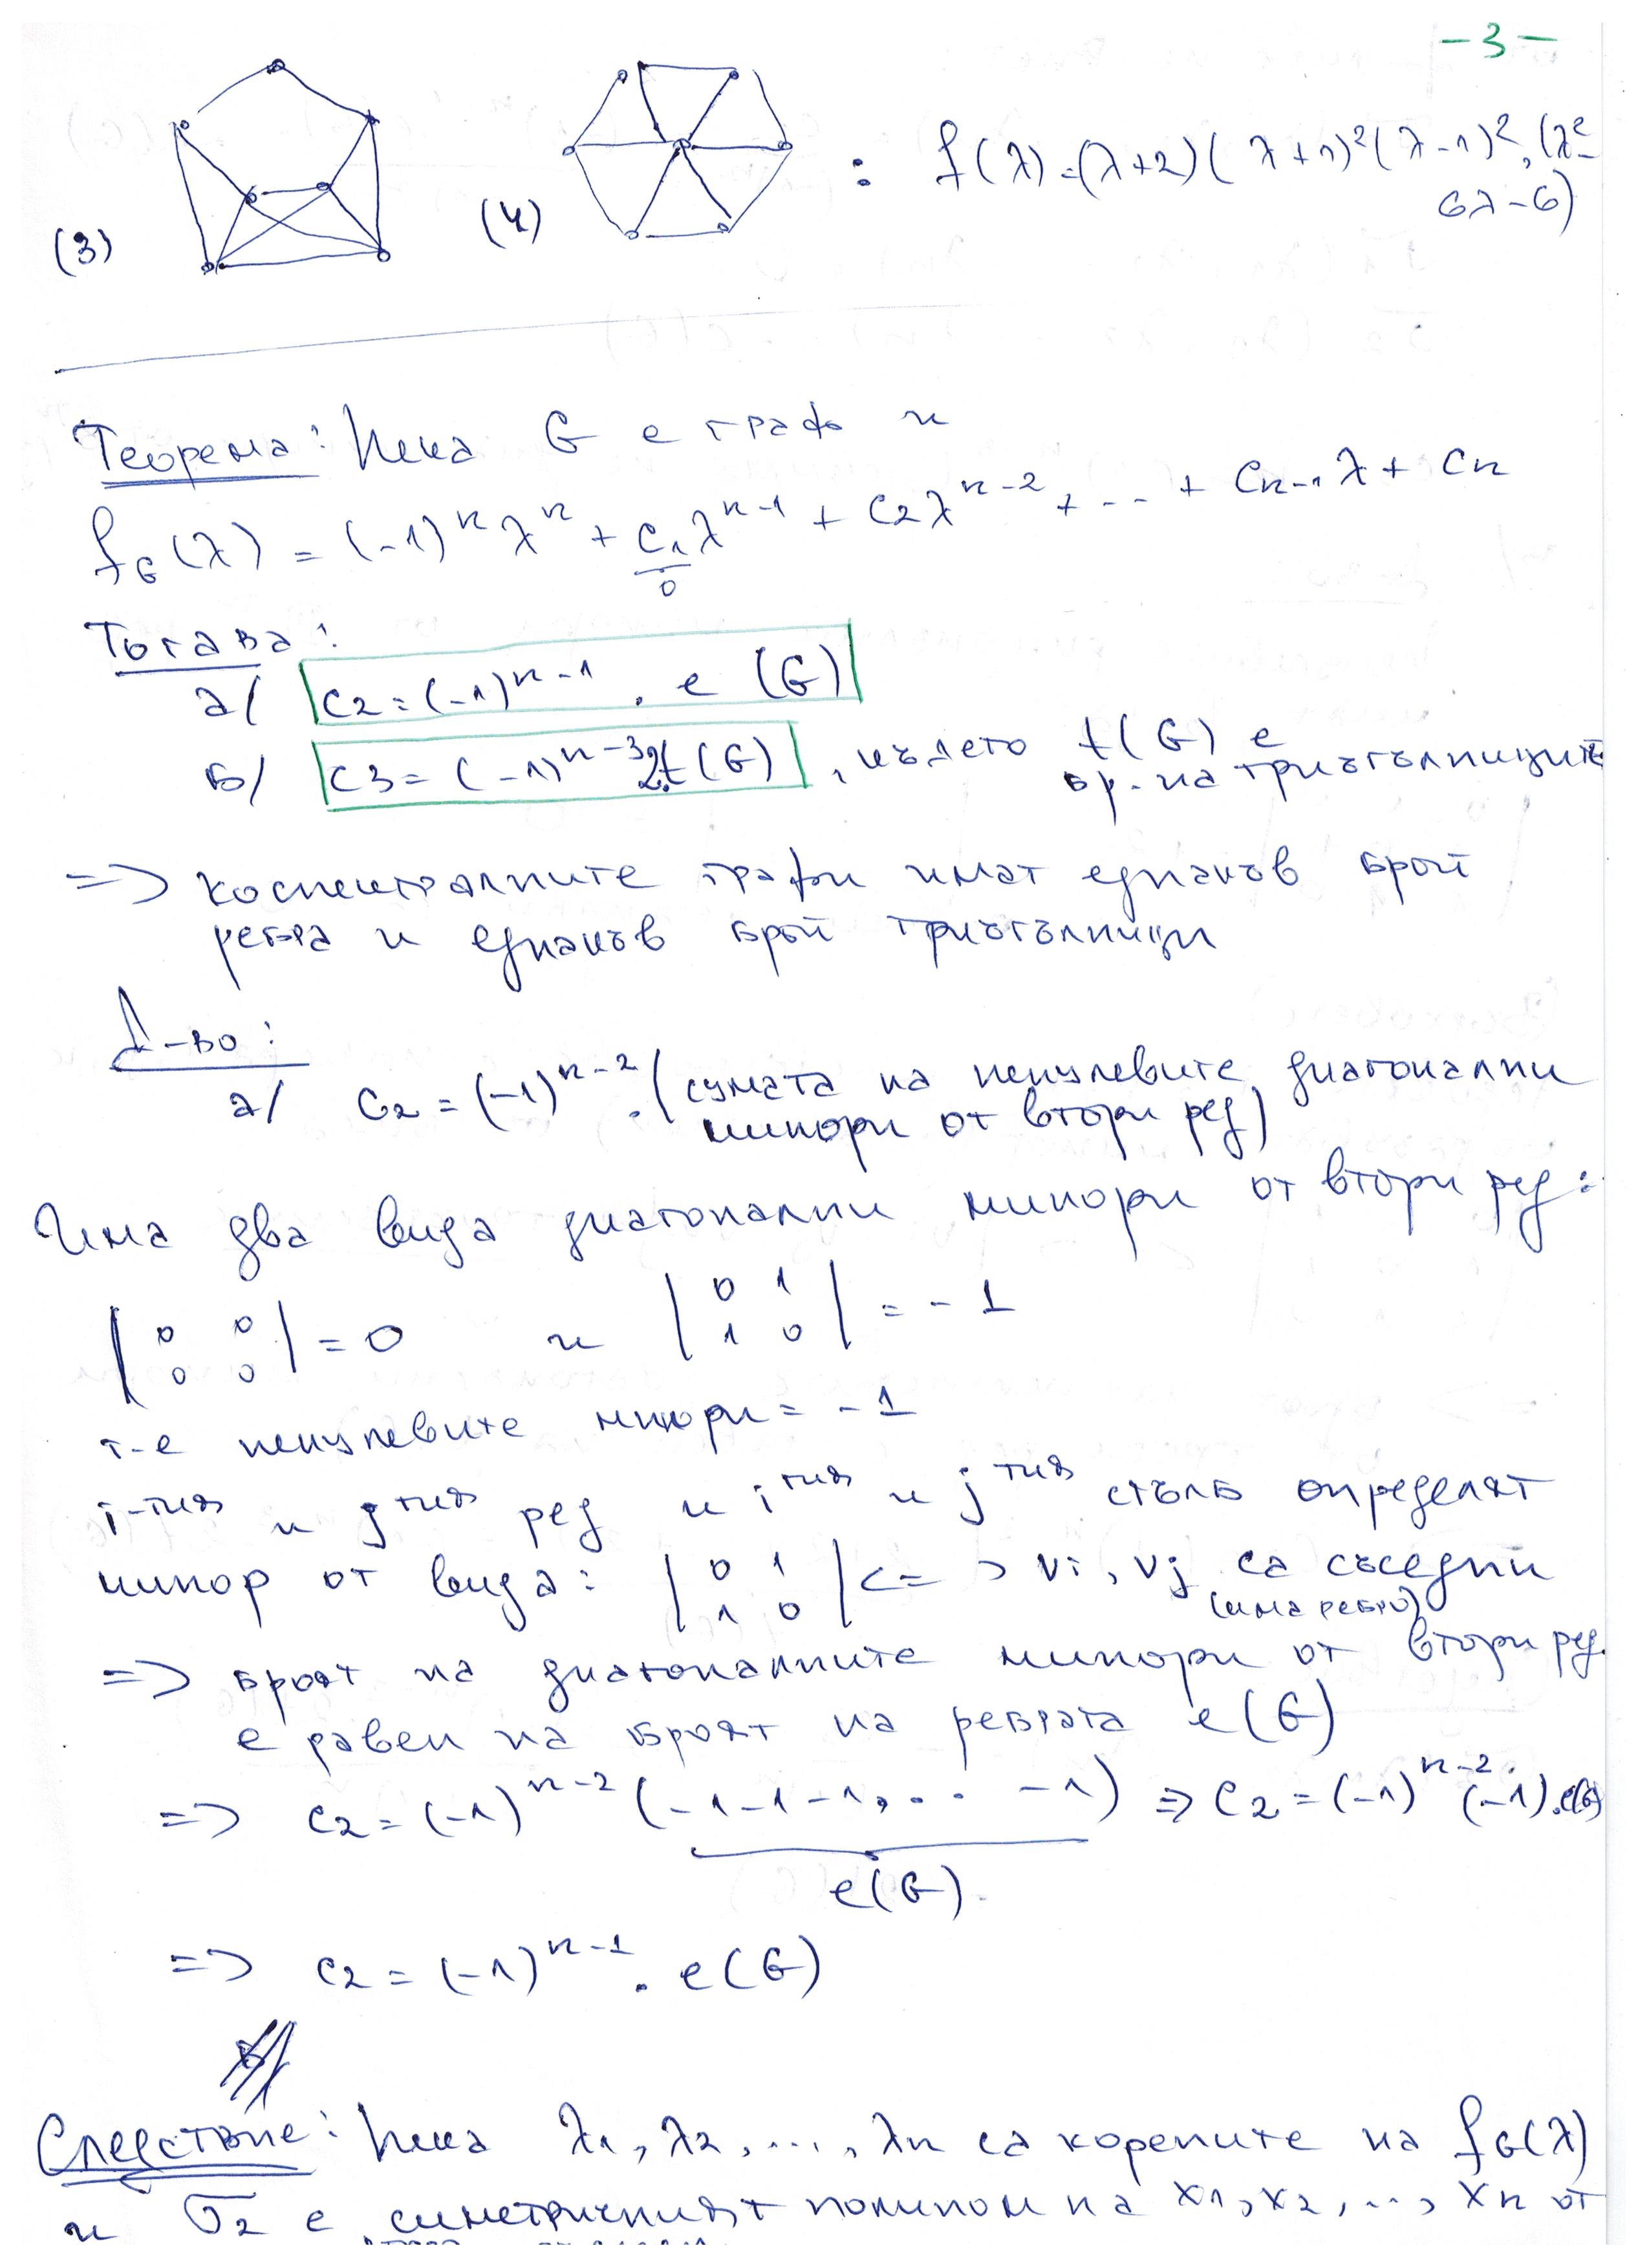 -3-
(3) (4) : f(λ)=(λ+2)(λ+1)²(λ-1)².(λ²-
6λ-6)
Теорема: Нека G е граф и
f_G(λ) = (-1)ⁿλⁿ + c₁λⁿ⁻¹ + c₂λⁿ⁻² + ... + cₙ₋₁λ + cₙ
0
Тогава:
а/ c₂=(-1)ⁿ⁻¹. e(G)
б/ c₃=(-1)ⁿ⁻³2t(G), където t(G) е
бр. на триъгълниците
=> коспектралните графи имат еднакъв брой
ребра и еднакъв брой триъгълници
Д-во:
а/ c₂=(-1)ⁿ⁻².(сумата на ненулевите диагонални
минори от втори ред)
Има два вида диагонални минори от втори ред:
|0 0| = 0 и |0 1| = -1
|0 0| |1 0|
т-е ненулевите минори = -1
i-тия и j тия ред и i тия и j тия стълб определят
минор от вида: |0 1| <=> vi, vj са съседни
|1 0| (има ребро)
=> броят на диагоналните минори от втори ред
е равен на броят на ребрата e(G)
=> c₂=(-1)ⁿ⁻²(-1-1-1, . . . -1) => c₂=(-1)ⁿ⁻².(-1).e(G)
e(G).
=> c₂=(-1)ⁿ⁻¹. e(G)
Следствие: Нека λ₁, λ₂, ..., λₙ са корените на f_G(λ)
и σ₂ е симетричният полином на x₁, x₂, ..., xₙ от